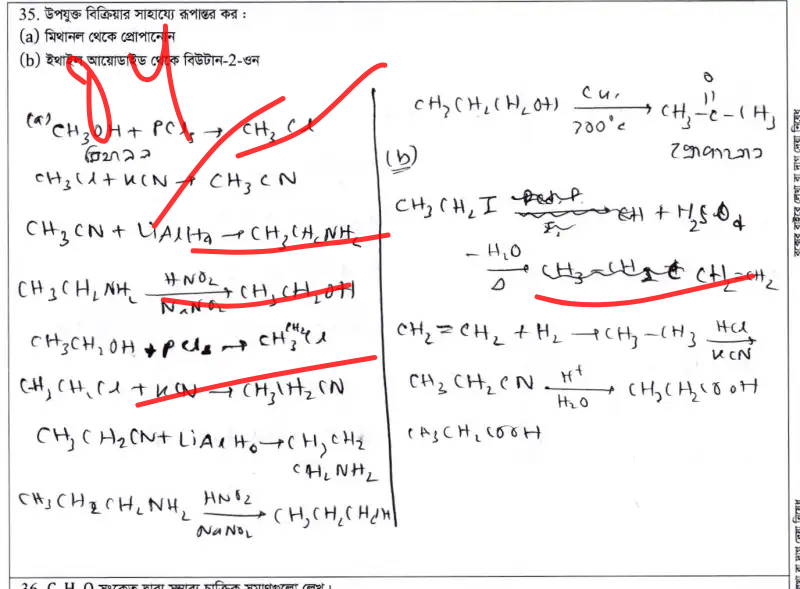 35. উপযুক্ত বিক্রিয়ার সাহায্যে রূপান্তর কর :
(a) মিথানল থেকে প্রোপানোন
(b) ইথাইল আয়োডাইড থেকে বিউটান-2-ওন
(a) CH3OH + PCl5 → CH3Cl
CH3Cl + KCN → CH3CN
CH3CN + LiAlH4 → CH3CH2NH2
CH3CH2NH2 HNO2 NaNO2 → CH3CH2OH
CH3CH2OH + PCl5 → CH3CH2Cl
CH3CH2Cl + KCN → CH3CH2CN
CH3CH2CN + LiAlH4 → CH3CH2
CH2NH2
CH3CH2CH2NH2 HNO2 NaNO2 → CH3CH2CH2OH
CH3CH2CH2OH Cu 300°c → CH3-C-CH3
O
(b)
CH3CH2I → CH + H2SO4
-H2O Δ → CH2=CH2
CH2=CH2 + H2 → CH3-CH3 HCl KCN →
CH3CH2CN H+ H2O → CH3CH2COOH
CH3CH2COOH